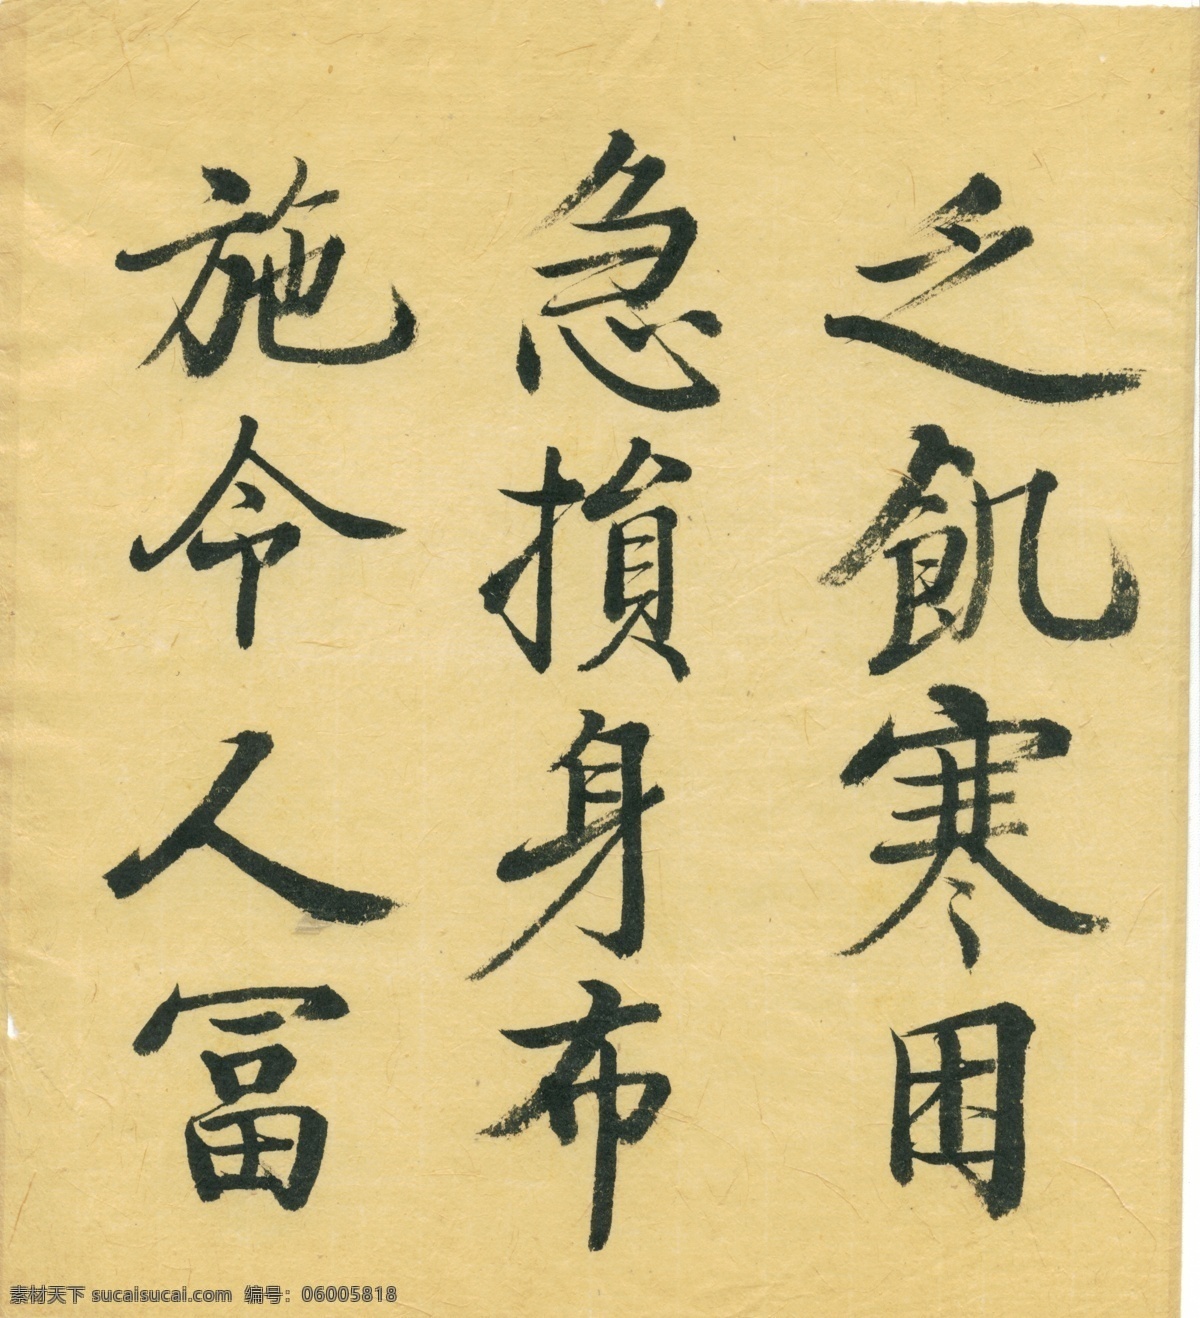 乏飢寒困
急損身布
施令人冨
素材天下 sucaisucai.com 编号：06005818